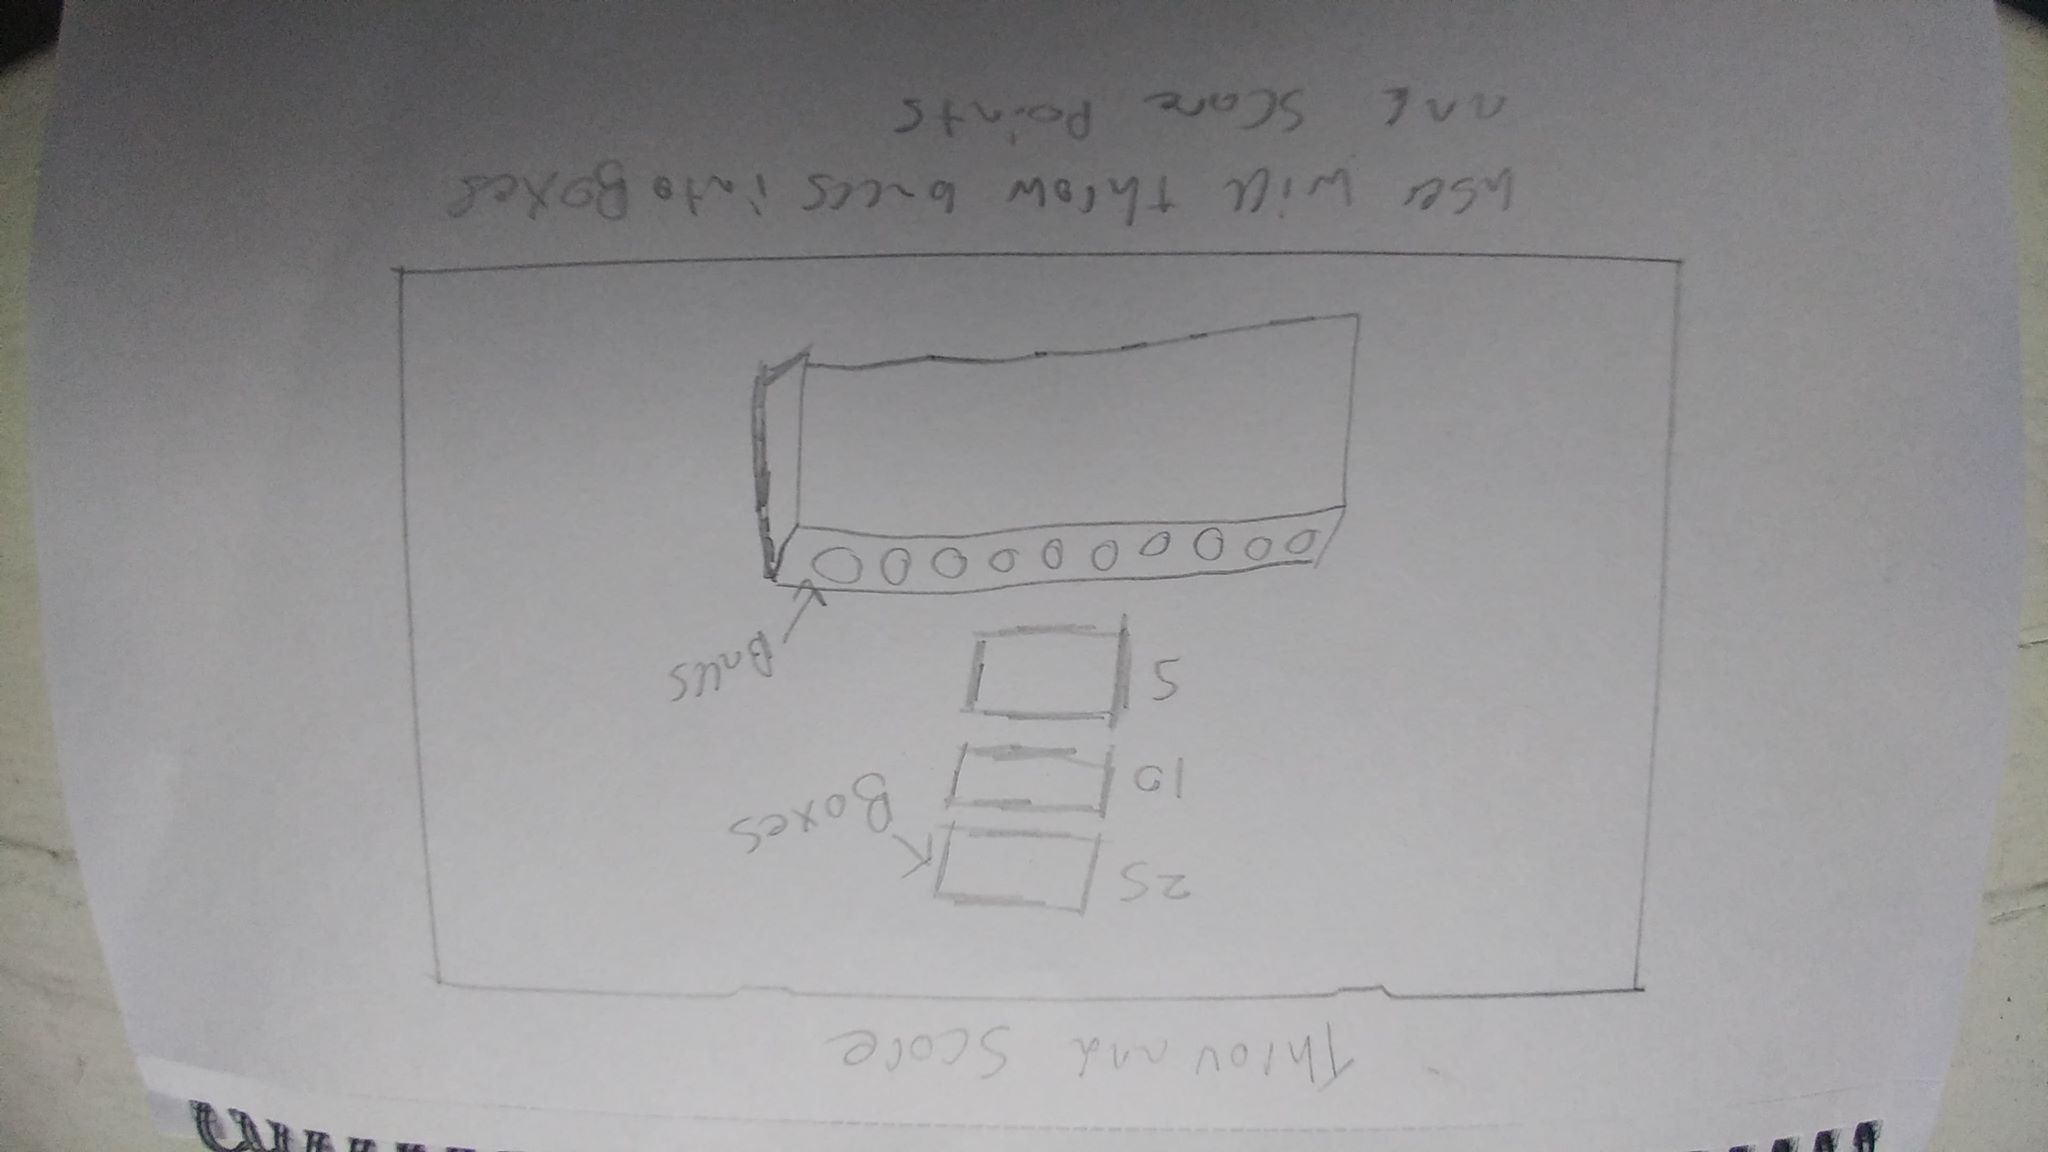 Throw and Score
25
Boxes
10
5
Balls
User will throw balls into Boxes
and score points